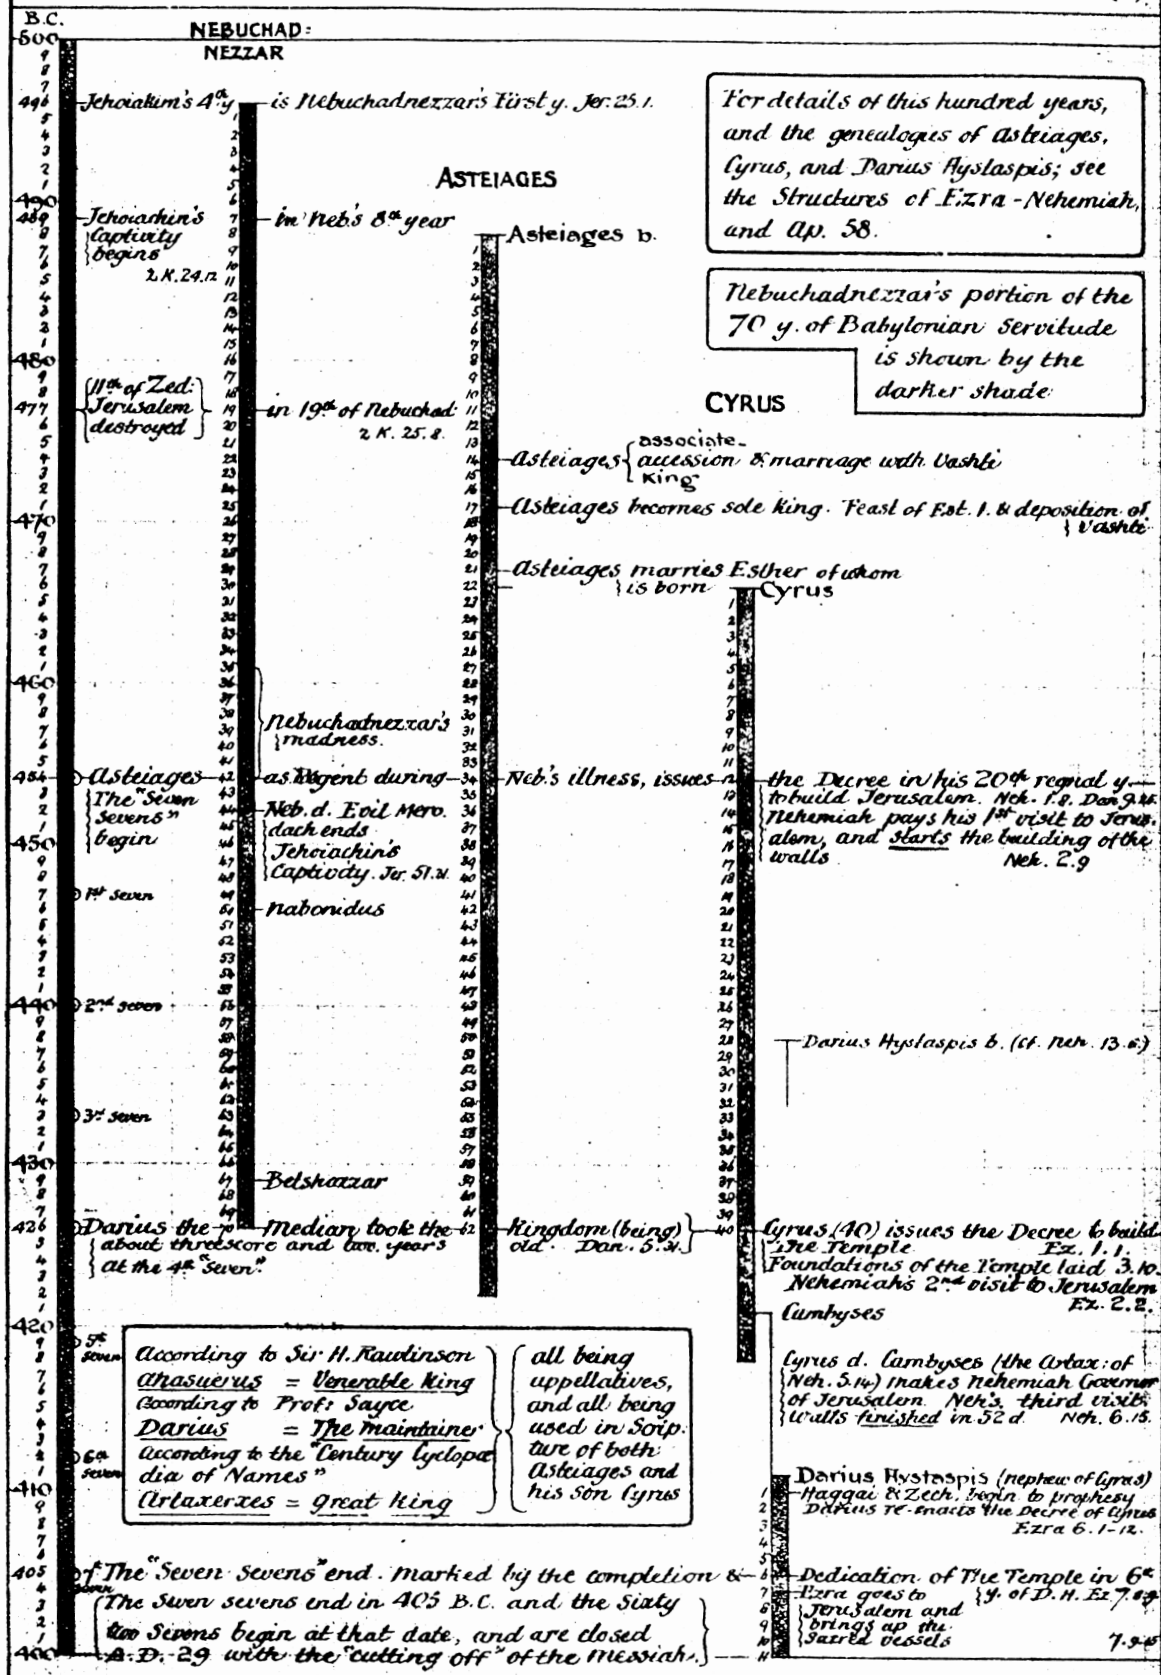 B.C.
500
NEBUCHAD:
NEZZAR
496 Jehoiakim's 4th y is Nebuchadnezzar's First y. Jer. 25.1.
For details of this hundred years,
and the genealogies of Asteiages,
Cyrus, and Darius Hystaspis; see
the Structures of Ezra-Nehemiah,
and Ap. 58.
ASTEIAGES
490
489 Jehoiachin's in Neb's 8th year
Captivity
begins
2 K. 24.12
Asteiages b.
Nebuchadnezzar's portion of the
70 y. of Babylonian Servitude
is shown by the
darker shade
480
11th of Zed:
477 Jerusalem in 19th of Nebuchad:
destroyed 2 K. 25.8.
CYRUS
Asteiages associate
accession & marriage with Vashti
King
Asteiages becomes sole King. Feast of Est. 1. & deposition of
Vashti
470
Asteiages married Esther of whom
is born Cyrus
460
Nebuchadnezzar's
madness.
454 Asteiages as Regent during Neb's illness, issues the Decree in his 20th regnal y
The "Seven
Sevens"
begin
to build Jerusalem. Neh. 1.8. Dan 9.25.
Nehemiah pays his 1st visit to Jerus-
alem, and starts the building of the
walls Neh. 2.9
Neb. d. Evil Mero.
dach ends
Jehoiachin's
Captivity. Jer. 51.31.
450
1st Seven
Nabonidus
440 2nd Seven
Darius Hystaspis b. (cf. Neh. 13.6.)
3rd Seven
430
Belshazzar
426 Darius the Median took the Kingdom (being)
about threescore and two years old. Dan. 5.31.
at the 4th "Seven".
Cyrus (40) issues the Decree to build
The Temple Ez. 1.1.
Foundations of the Temple laid 3.10.
Nehemiah's 2nd visit to Jerusalem
Ez. 2.2.
420
Cambyses
5th
Seven
According to Sir H. Rawlinson
Ahasuerus = Venerable King
According to Prof: Sayce
Darius = The Maintainer
According to the "Century Cyclopæ
dia of Names"
Artaxerxes = Great King
all being
appellatives,
and all being
used in Scrip.
ture of both
Asteiages and
his son Cyrus
Cyrus d. Cambyses (the Artax: of
Neh. 5.14) makes Nehemiah Governor
of Jerusalem. Neh's. third visit;
walls finished in 52 d. Neh. 6.15.
6th
Seven
410
Darius Hystaspis (nephew of Cyrus)
Haggai & Zech. begin to prophesy
Darius re-enacts the Decree of Cyrus
Ezra 6.1-12.
405 The "Seven Sevens" end. marked by the completion & Dedication of The Temple in 6th
y. of D.H. Ez
Ezra goes to
Jerusalem and
brings up the
Sacred vessels
The Seven sevens end in 405 B.C. and the Sixty
two Sevens begin at that date, and are closed
A.D. 29 with the "cutting off" of the Messiah.
400